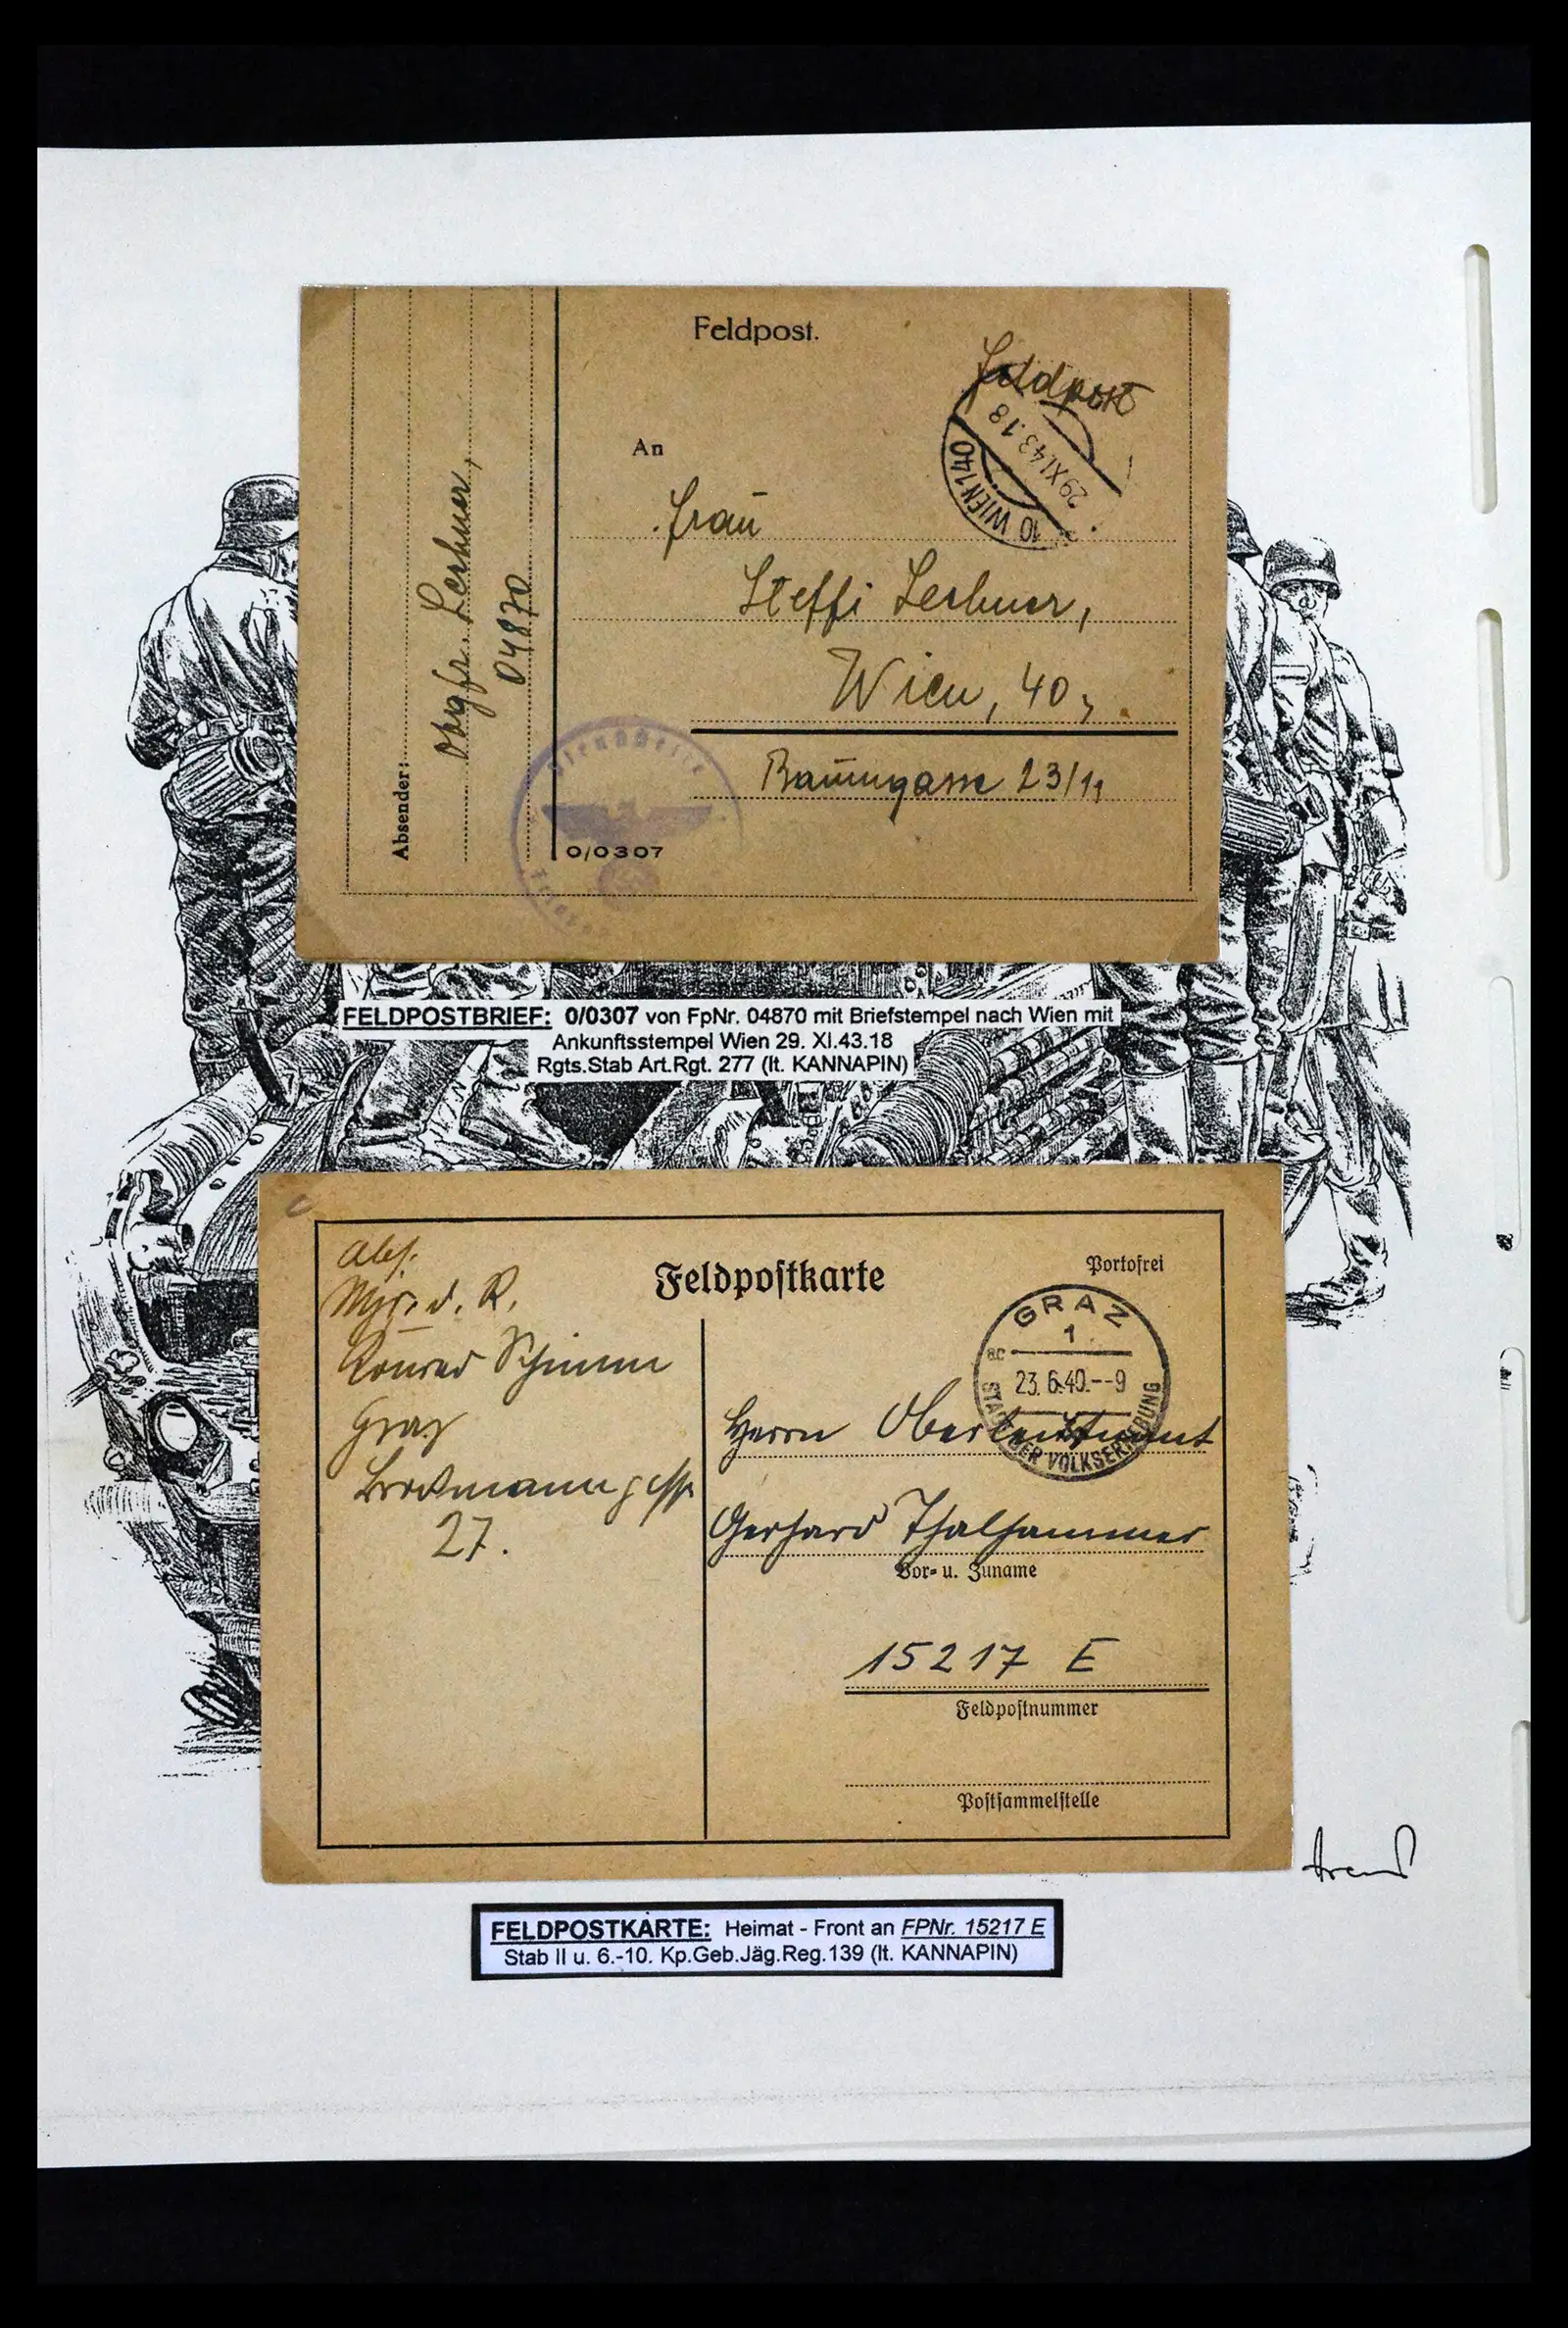 Feldpost.
Feldpost
10 WIEN 140
29.XI.43.18
An
Frau
Steffi Lerhner,
Wien, 40,
Baumgasse 23/11
Absender:
Obgfr. Lerhner,
04870
Dienststelle
0/0307
FELDPOSTBRIEF: 0/0307 von FpNr. 04870 mit Briefstempel nach Wien mit
Ankunftsstempel Wien 29. XI.43.18
Rgts.Stab Art.Rgt. 277 (lt. KANNAPIN)
Abs.
Mjr. d. R.
Konrad Schimm
Graz
Brockmanngasse
27.
Feldpostkarte
Portofrei
GRAZ
1
23. 6.40.--9
STADT DER VOLKSERHEBUNG
Herrn Oberleutnant
Gerhard Thalhammer
Vor- u. Zuname
15217 E
Feldpostnummer
Postsammelstelle
FELDPOSTKARTE: Heimat - Front an FPNr. 15217 E
Stab II u. 6.-10. Kp.Geb.Jäg.Reg.139 (lt. KANNAPIN)